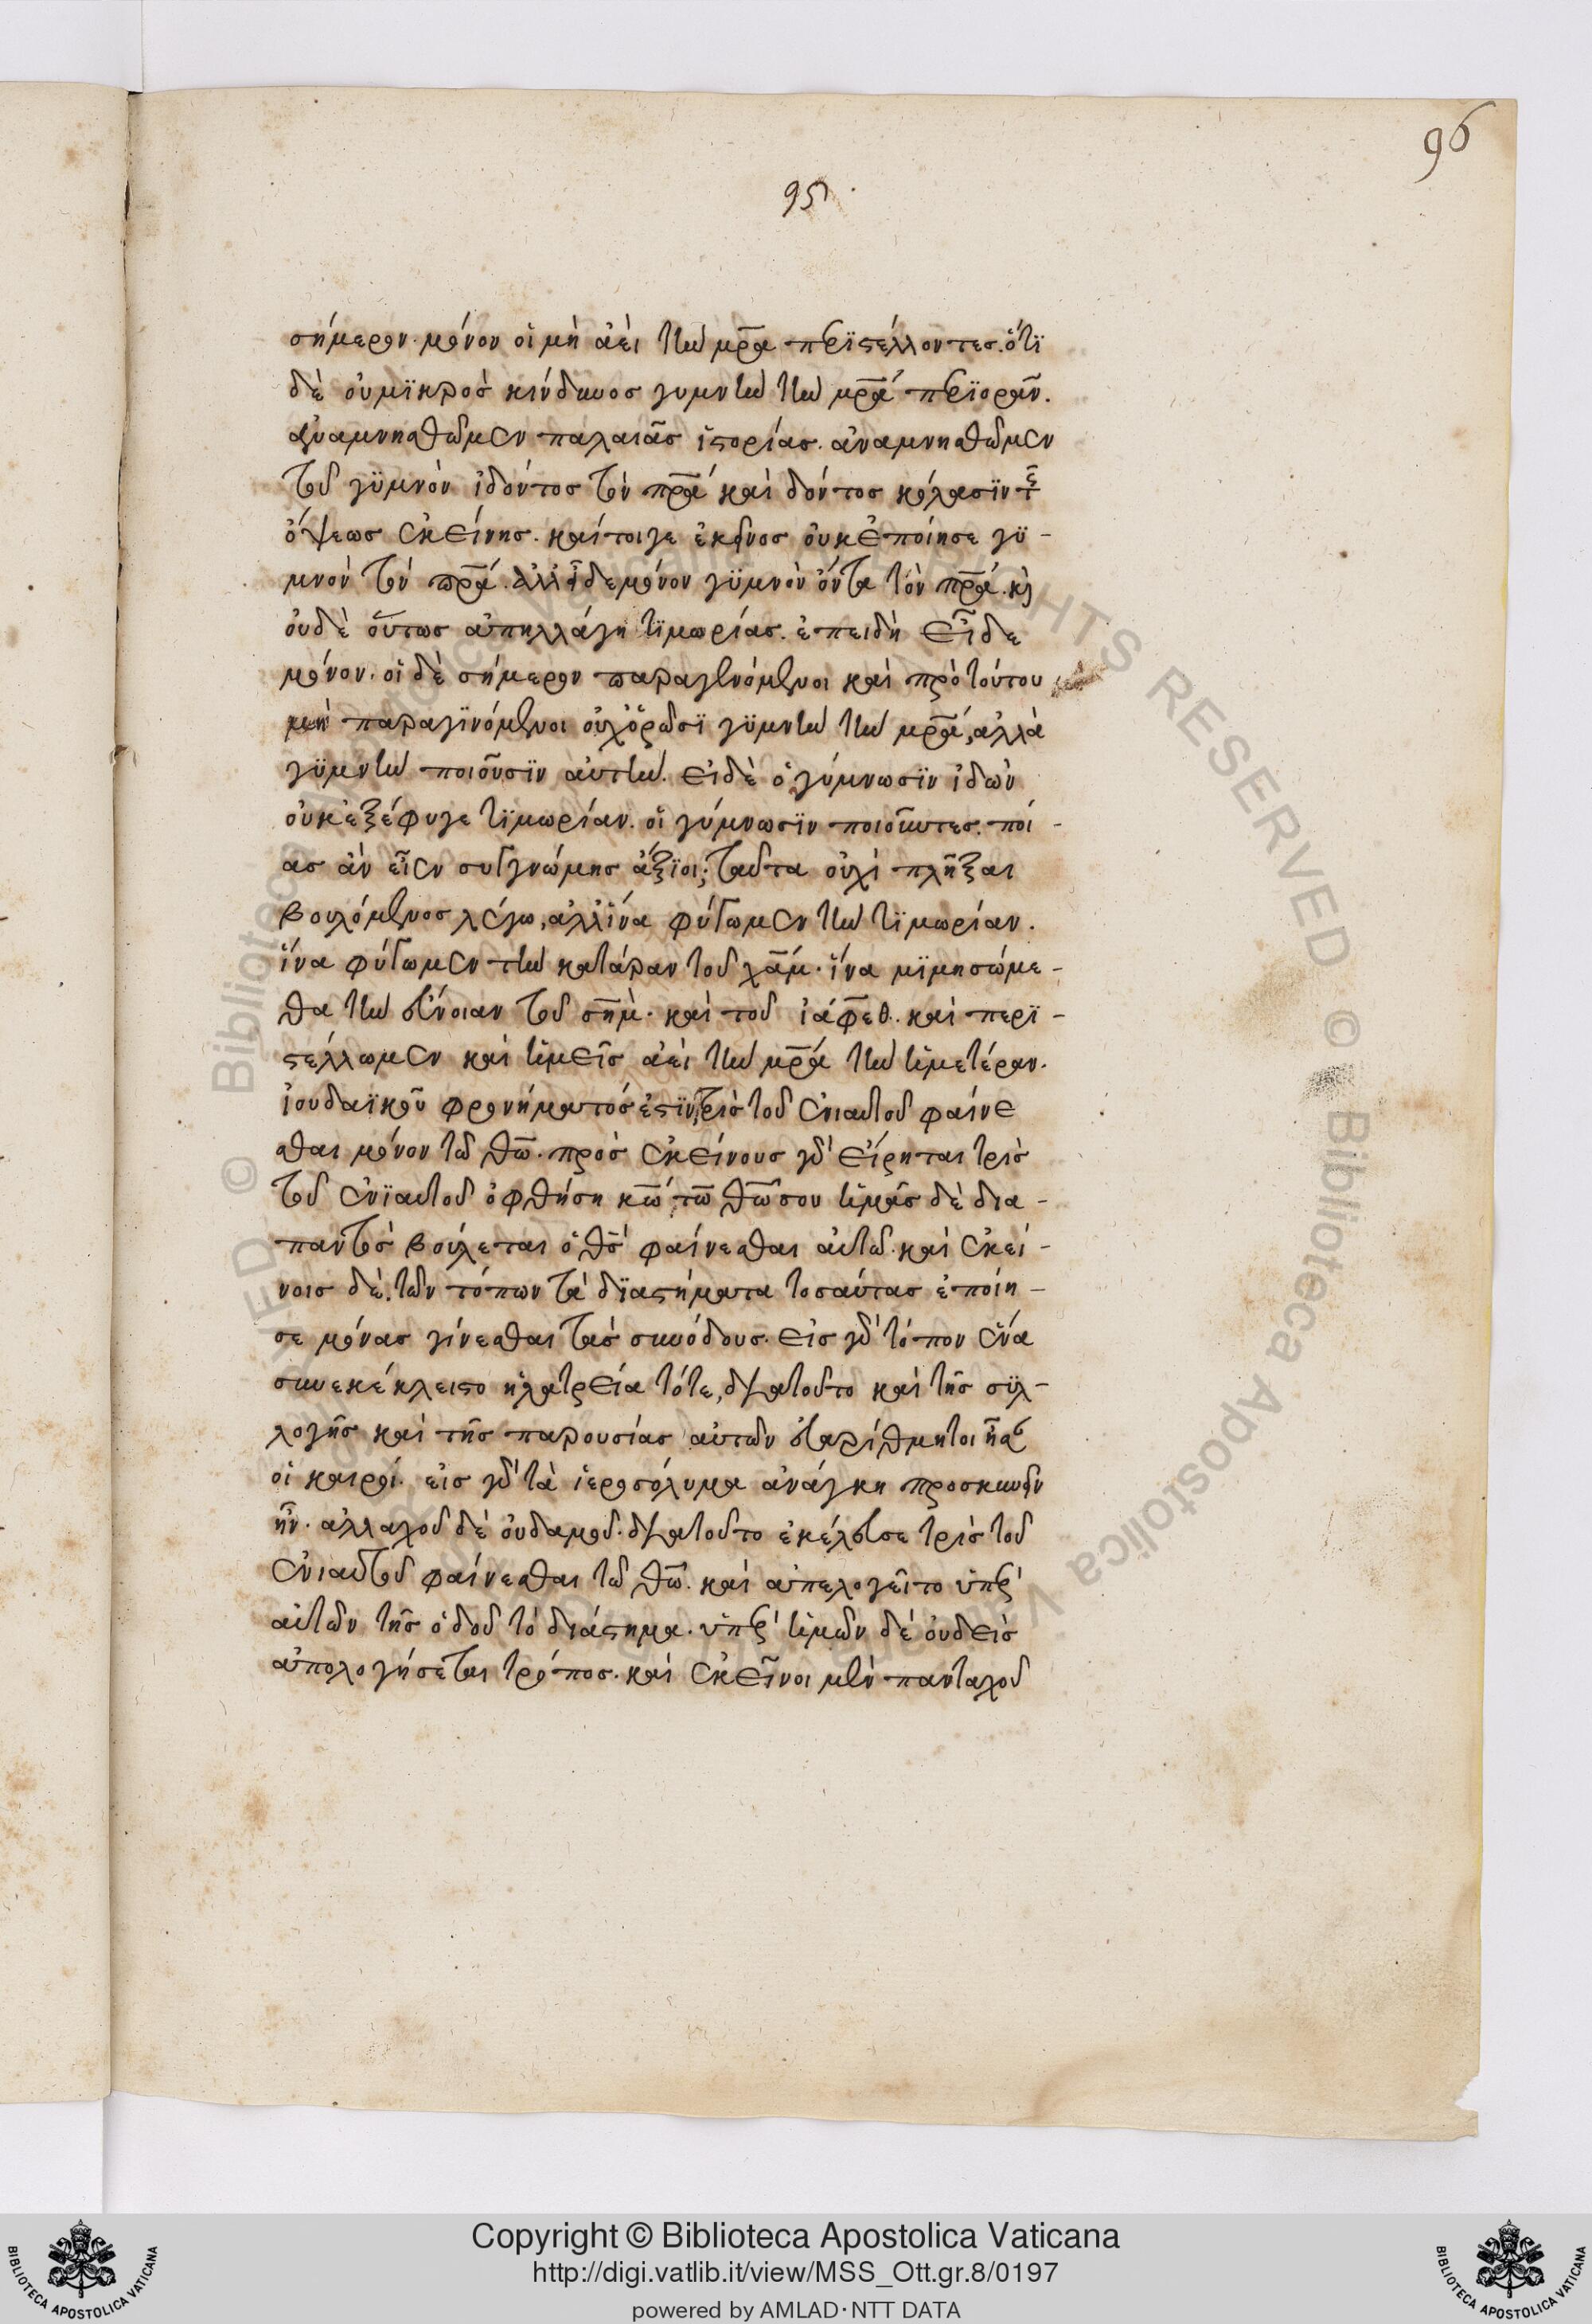 96
95
σήμερον· μόνον οἱ μὴ ἀεὶ τὴν μρ̅α περϊστέλλοντες. ὅτϊ
δὲ οὐ μϊκρὸς κίνδυνος γυμνὴν τὴν μρ̅α περϊορᾶν.
ἀναμνησθῶμεν παλαιᾶς ἱστορίας. ἀναμνησθῶμεν
τοῦ γϋμνὸν ἰδόντος τὸν πρ̅α καὶ δόντος κόλασϊν τῆς
ὄψεως ἐκείνης. καίτοιγε ἐκεῖνος οὐκ ἐποίησε γϋ-
μνὸν τὸν πρ̅α. ἀλλ' εἶδε μόνον γϋμνὸν ὄντα τὸν πρ̅α. κὶ
οὐδὲ οὕτως ἀπηλλάγη τϊμωρίας. ἐπειδὴ εἶδε
μόνον. οἱ δὲ σήμερον παραγενόμενοι καὶ πρὸ τούτου
μὴ παραγϊνόμενοι οὐχ ὁρῶσϊ γϋμνὴν τὴν μρ̅α, ἀλλὰ
γϋμνὴν ποιοῦσϊν αὐτήν. εἰ δὲ ὁ γύμνωσϊν ἰδὼν
οὐκ ἐξέφυγε τϊμωρίαν. οἱ γύμνωσϊν ποιοῦντες. ποί-
ας ἂν εἶεν συγγνώμης ἄξϊοι; ταῦτα οὐχὶ πλῆξαι
βουλόμενος λέγω, ἀλλ' ἵνα φύγωμεν τὴν τϊμωρίαν.
ἵνα φύγωμεν τὴν κατάραν τοῦ χάμ. ἵνα μϊμησώμε-
θα τὴν εὔνοιαν τοῦ σὴμ. καὶ τοῦ ἰάφεθ. καὶ περϊ-
στέλλωμεν καὶ ἡμεῖς ἀεὶ τὴν μρ̅α τὴν ἡμετέραν.
ἰουδαϊκοῦ φρονήματός ἐστϊν, τρὶς τοῦ ἐνιαυτοῦ φαίνε
σθαι μόνον τῶ θ̅ω. πρὸς ἐκείνους γὰρ εἴρηται τρὶς
τοῦ ἐνϊαυτοῦ ὀφθήση κ̅ω τῶ θ̅ω σου ἡμᾶς δὲ δια-
παντὸς βούλεται ὁ θ̅ς φαίνεσθαι αὐτῶ. καὶ ἐκεί-
νοις δὲ. τῶν τόπων τὰ δϊαστήματα τοσαύτας ἐποίη-
σε μόνας γίνεσθαι τὰς συνόδους. εἰς γὰρ τόπον ἕνα
συνεκέκλειστο ἡ λατρεία τότε, διὰ τοῦτο καὶ τῆς σϋλ-
λογῆς καὶ τῆς παρουσίας αὐτῶν εὐαρίθμητοι ἦσαν
οἱ καιροί. εἰς γὰρ τὰ ἱεροσόλυμα ἀνάγκη προσκυνεῖν
ἦν. ἀλλαχοῦ δὲ οὐδαμοῦ. διὰ τοῦτο ἐκέλευσε τρὶς τοῦ
ἐνιαυτοῦ φαίνεσθαι τῶ θ̅ω. καὶ ἀπελογεῖτο ὑπὲρ
αὐτῶν τῆς ὁδοῦ τὸ διάστημα. ὑπὲρ ἡμῶν δὲ οὐδεὶς
ἀπολογήσεται τρόπος. καὶ ἐκεῖνοι μὲν πανταχοῦ
© Biblioteca Apostolica Vaticana
RIGHTS RESERVED © Biblioteca Apostolica Vaticana
Copyright © Biblioteca Apostolica Vaticana
http://digi.vatlib.it/view/MSS_Ott.gr.8/0197
powered by AMLAD·NTT DATA
BIBLIOTECA APOSTOLICA VATICANA
BIBLIOTECA APOSTOLICA VATICANA